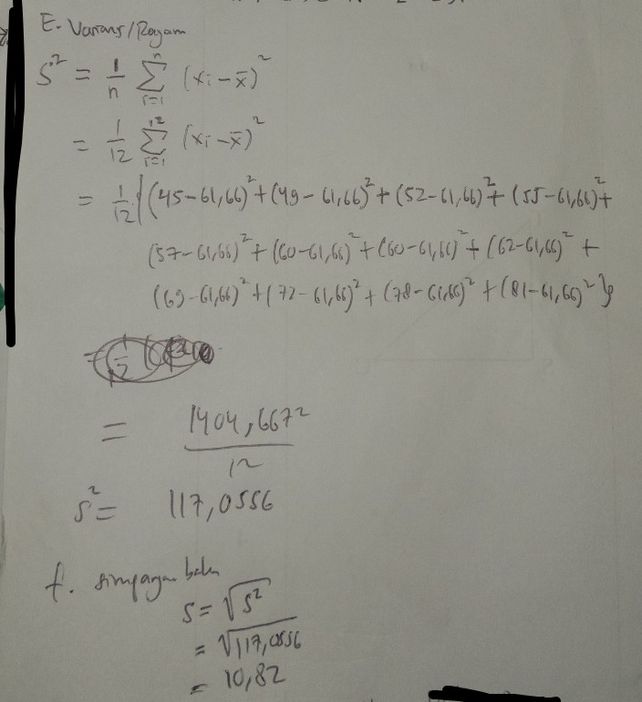 E. Varians/Ragam
S² = 1/n Σ_{i=1}^{n} (xi - x̄)²
= 1/12 Σ_{i=1}^{12} (xi - x̄)²
= 1/12 { (45-61,66)² + (49-61,66)² + (52-61,66)² + (55-61,66)² +
(57-61,66)² + (60-61,66)² + (60-61,66)² + (62-61,66)² +
(69-61,66)² + (72-61,66)² + (78-61,66)² + (81-61,66)² }
= 1404,6672 / 12
s² = 117,0556
f. simpangan baku
S = √S²
= √117,0556
= 10,82